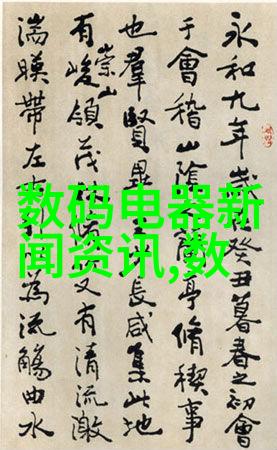 永和九年癸丑暮春之初會
于會稽山陰蘭亭脩稧事
也羣賢畢長咸集此地
有崇山峻領茂又有清流激
湍暎帶左為流觴曲水
数码电器新
闻资讯,数